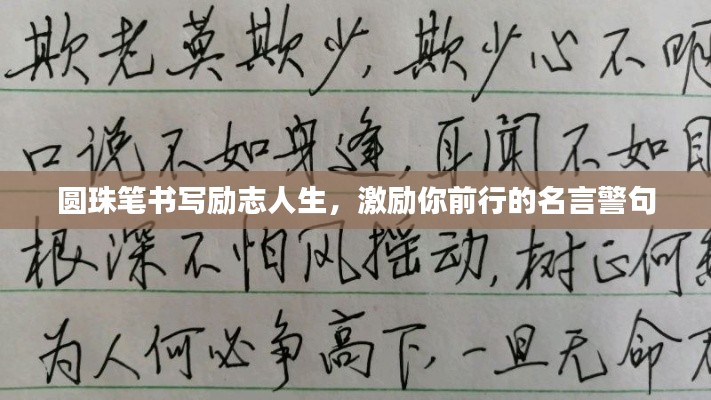 欺老莫欺少,欺少心不明
口说不如身逢,耳闻不如目
圆珠笔书写励志人生，激励你前行的名言警句
根深不怕风摇动,树正何
为人何必争高下,一旦无命